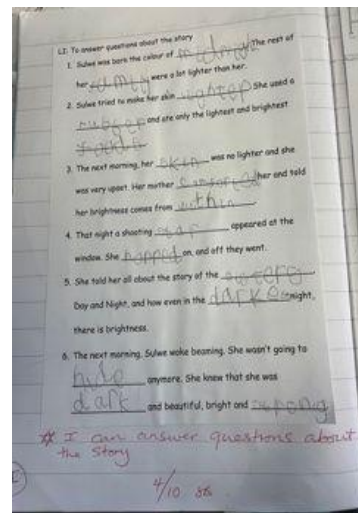 LI: To answer questions about the story
1. Sulwe was born the colour of midnight. The rest of
her family were a lot lighter than her.
2. Sulwe tried to make her skin lighter. She used a
rubber and ate only the lightest and brightest
foods.
3. The next morning, her skin was no lighter and she
was very upset. Her mother comforted her and told
her brightness comes from within.
4. That night a shooting star appeared at the
window. She hopped on, and off they went.
5. She told her all about the story of the sisters
Day and Night, and how even in the darkest night,
there is brightness.
6. The next morning, Sulwe woke beaming. She wasn't going to
hide anymore. She knew that she was
dark and beautiful, bright and strong
* I can answer questions about
the story
4/10